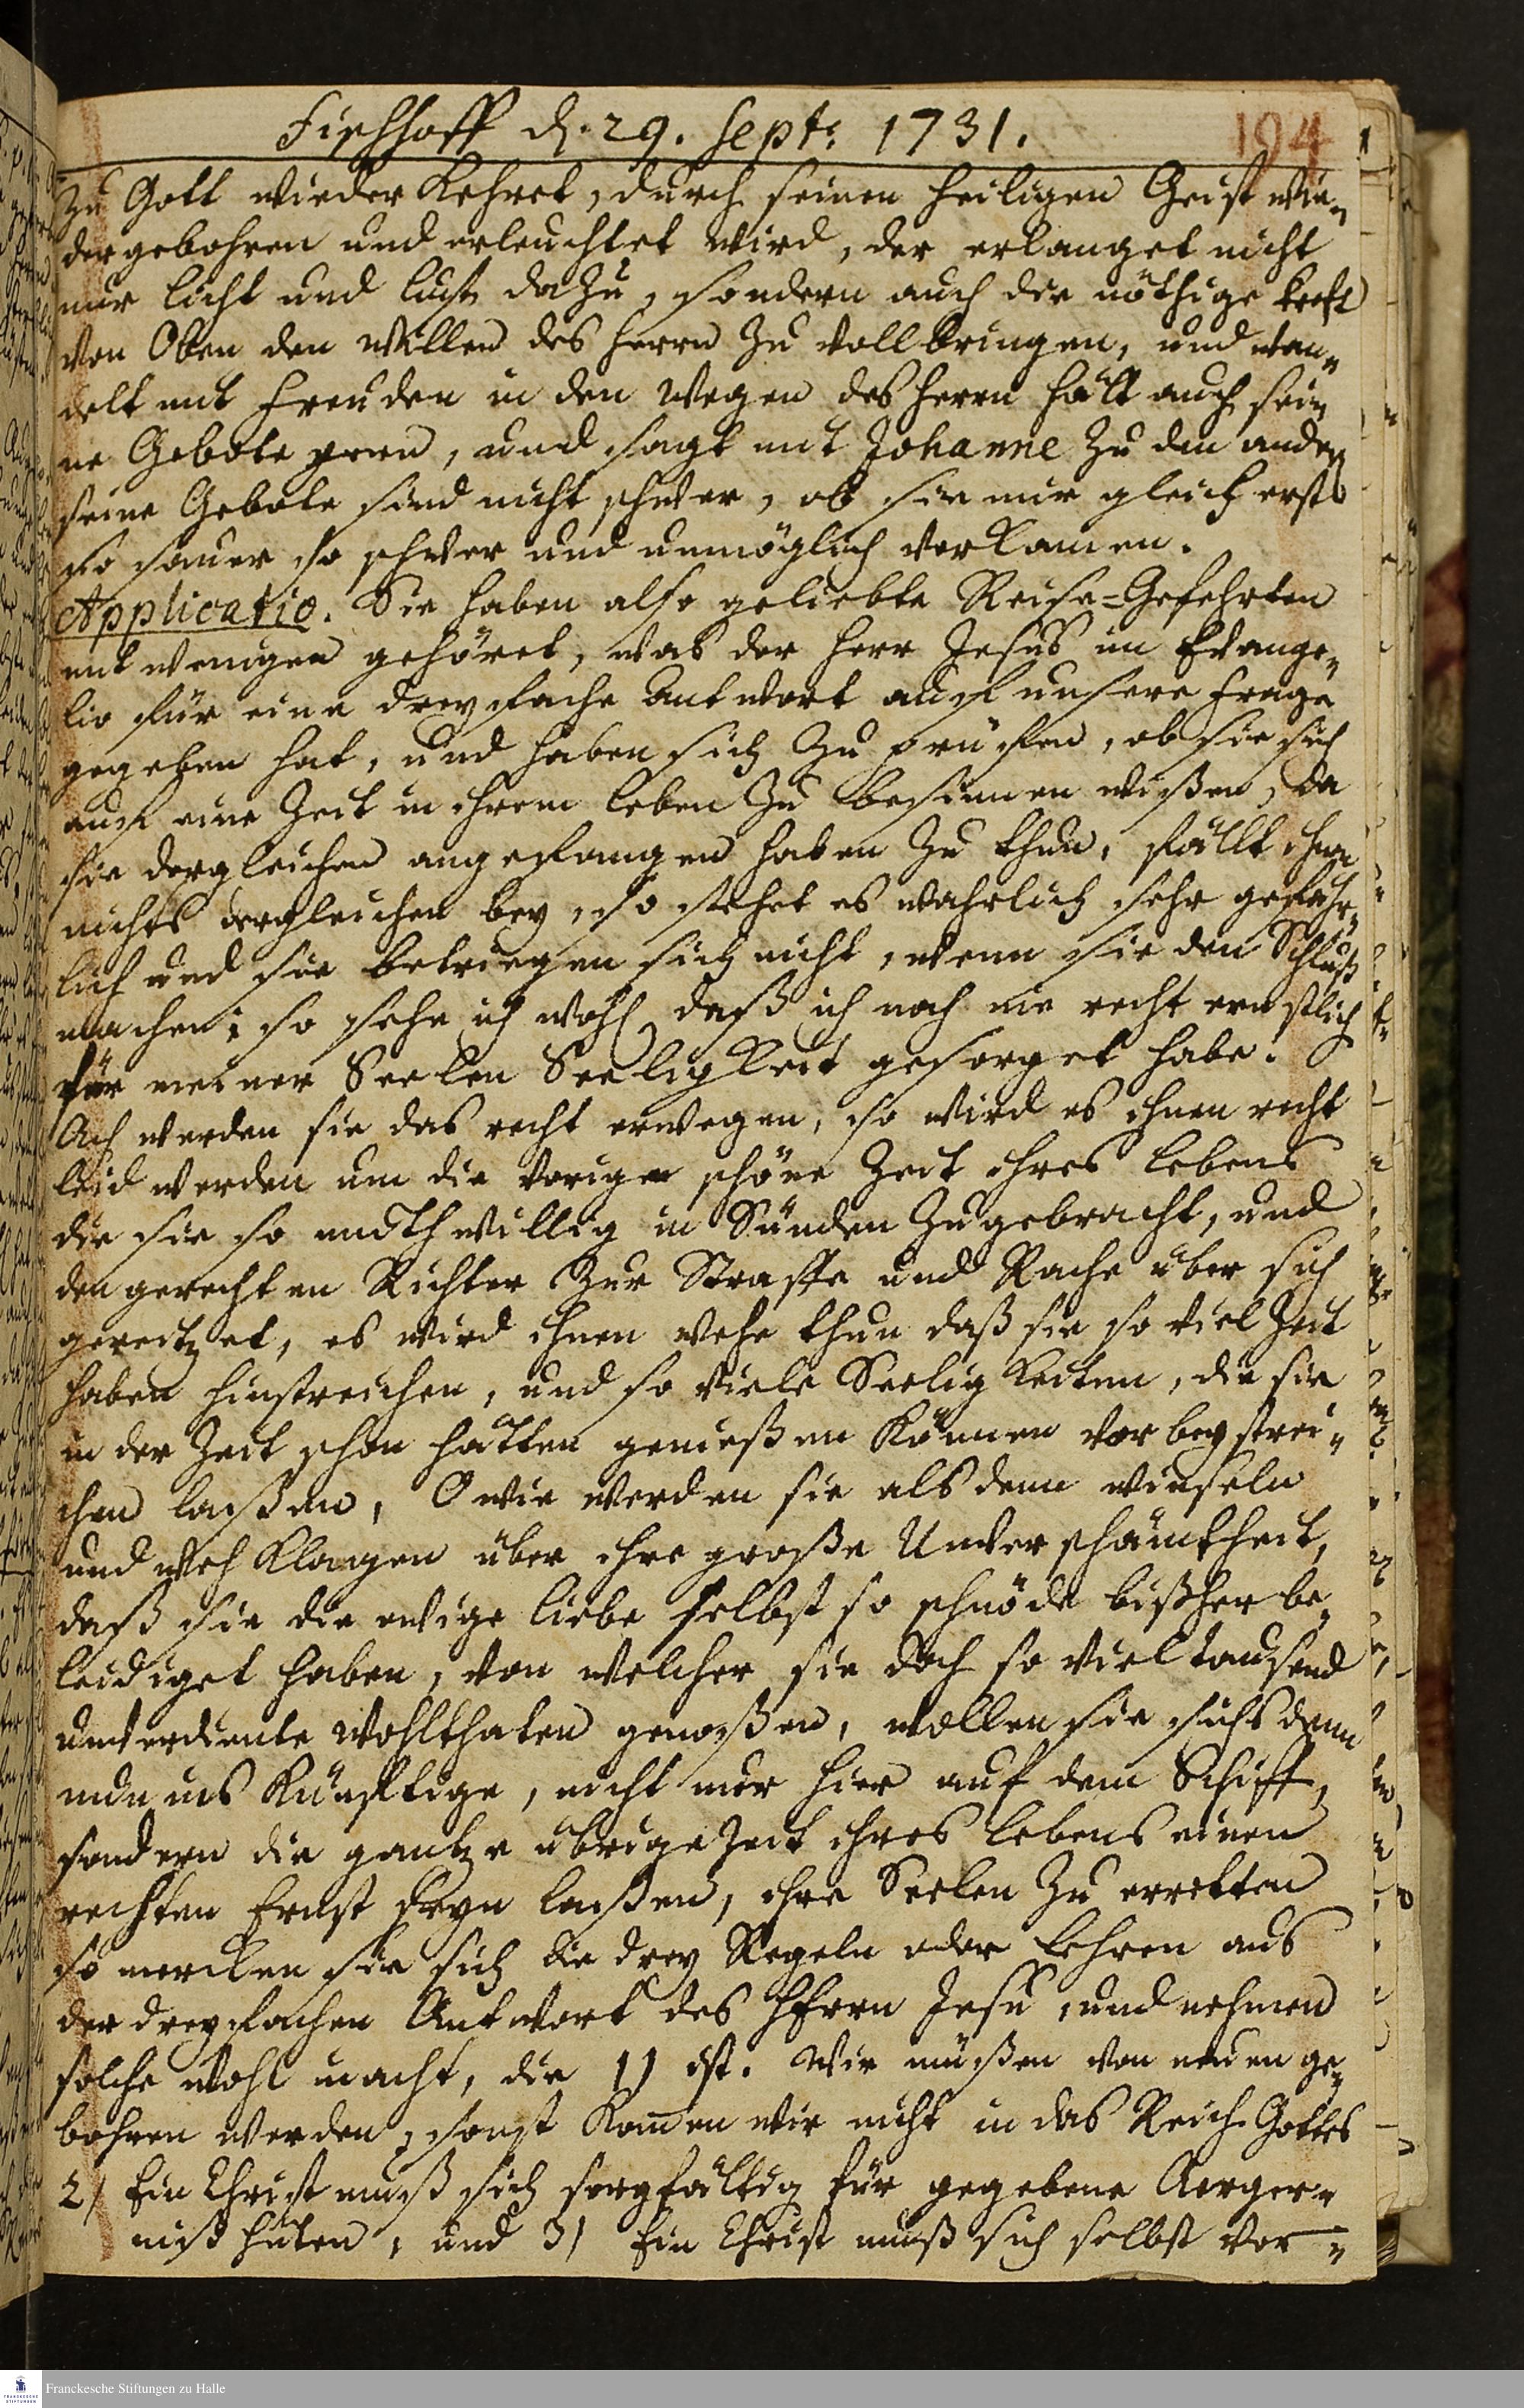 Fischhoff d. 29. Sept: 1731.
194
zu Gott wieder kehret, durch seinen heiligen Geist wie„
dergebohren und erleuchtet wird, der erlanget nicht
nur licht und lust dazu, sondern auch die nöthige kraft
von Oben den Willen des Herrn zu vollbringen, und wan„
delt mit Freuden in den Wegen des Herrn hält auch sei„
ne Gebote gern, und sagt mit Johanne zu den andern
seine Gebote sind nicht schwer, ob sie mir gleich erst
so sauer so schwer und unmöglich vorkamen.
Applicatio. Sie haben also geliebte Reise-Gefehrten
mit wenigen gehöret, was der Herr Jesus im Evange„
lio für eine dreyfache Antwort auf unsere Frage
gegeben hat, und haben sich zu prüfen, ob sie sich
auf eine Zeit in ihrem leben zu besinnen wißen, da
sie dergleichen angefangen haben zu thun, fällt ihnen
nichts dergleichen bey, so stehet es wahrlich sehr gefähr„
lich und sie betriegen sich nicht, wenn sie den Schluß
machen: so sehe ich wohl, daß ich noch nie recht ernstlich
für meiner Seelen Seeligkeit gesorget habe.
Ach werden sie das recht erwegen, so wird es ihnen recht
leid werden um die vorige schöne Zeit ihres lebens
die sie so muthwillig in Sünden zugebracht, und
den gerechten Richter zur Straffe und Rache über sich
gereitzet, es wird ihnen wehe thun daß sie so viel Zeit
haben hinstreichen, und so viele Seeligkeiten, die sie
in der Zeit schon hätten genießen können vorbeystrei„
chen laßen, O wie werden sie als denn winseln
und weh klagen über ihre große Unverschämtheit,
daß sie die ewige liebe selbst so schnöde bißher be„
leidiget haben, von welcher sie doch so viel tausend
unverdiente Wohlthaten genoßen, wollen sie sichs denn
nun ins künftige, nicht nur hier auf dem Schiff,
sondern die gantze übrige Zeit ihres lebens einen
rechten Ernst seyn laßen, ihre Seelen zu erretten
so mercken sie sich die drey Regeln oder Lehren aus
der dreyfachen Antwort des HErrn Jesu, und nehmen
solche wohl in acht, die 1) ist. Wir müßen von neuen ge„
bohren werden, sonst kom̄en wir nicht in das Reich Gottes
2) Ein Christ muß sich sorgfältig für gegebene Aerger„
niß hüten, und 3) Ein Christ muß sich selbst ver„
Franckesche Stiftungen zu Halle